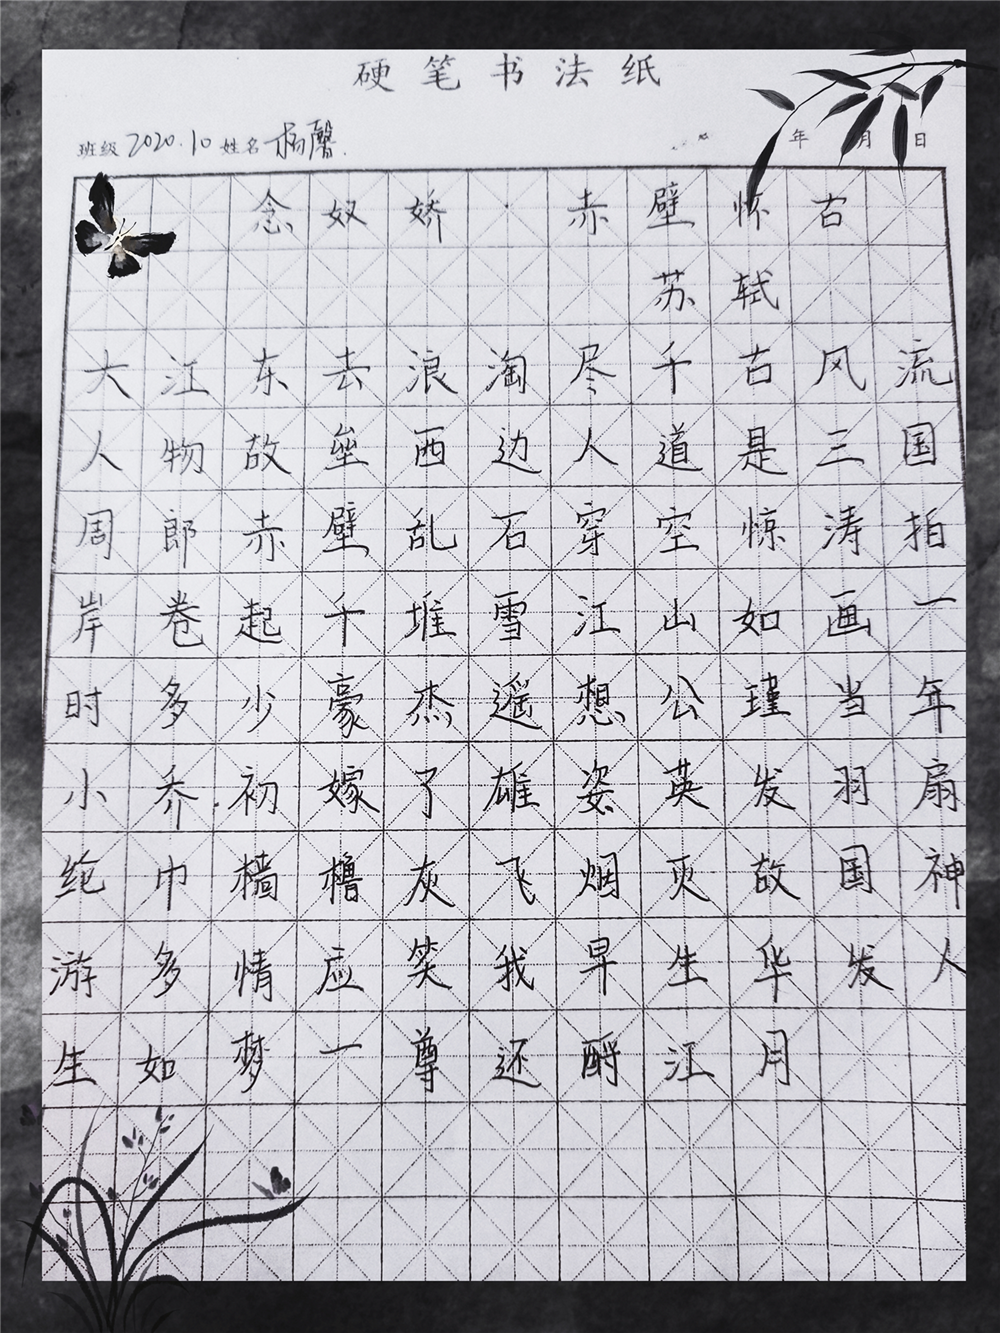 硬笔书法纸
班级 2020.10 姓名 杨馨 年 月 日
念奴娇·赤壁怀古
苏轼
大江东去浪淘尽千古风流
人物故垒西边人道是三国
周郎赤壁乱石穿空惊涛拍
岸卷起千堆雪江山如画一
时多少豪杰遥想公瑾当年
小乔初嫁了雄姿英发羽扇
纶巾樯橹灰飞烟灭故国神
游多情应笑我早生华发人
生如梦一尊还酹江月